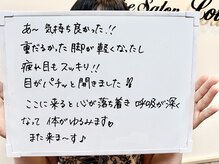 The Salon Lo
あ〜 気持ち良かった!!
重だるかった 脚が軽くなったし
疲れ目もスッキリ!!
目がパチッと開きました!!
ここに来ると心が落ち着き 呼吸が深く
なって 体がゆるみます。
また来ま〜す♪